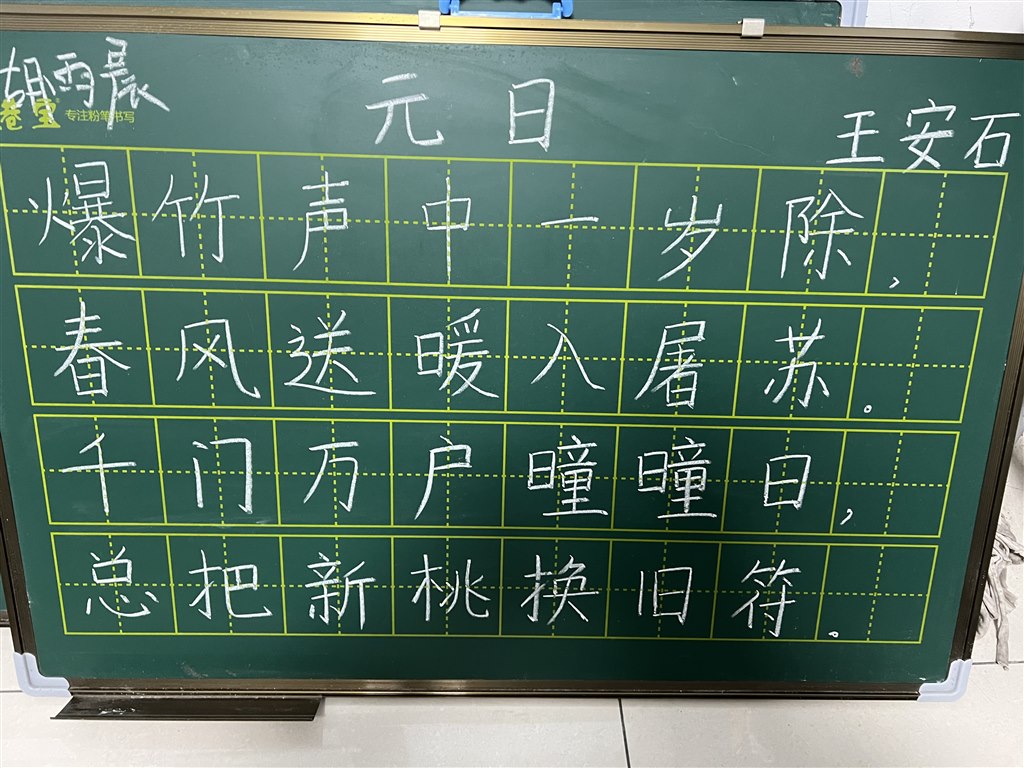 胡雨晨
卷宝® 专注粉笔书写
元日
王安石
爆竹声中一岁除，
春风送暖入屠苏。
千门万户曈曈日，
总把新桃换旧符.